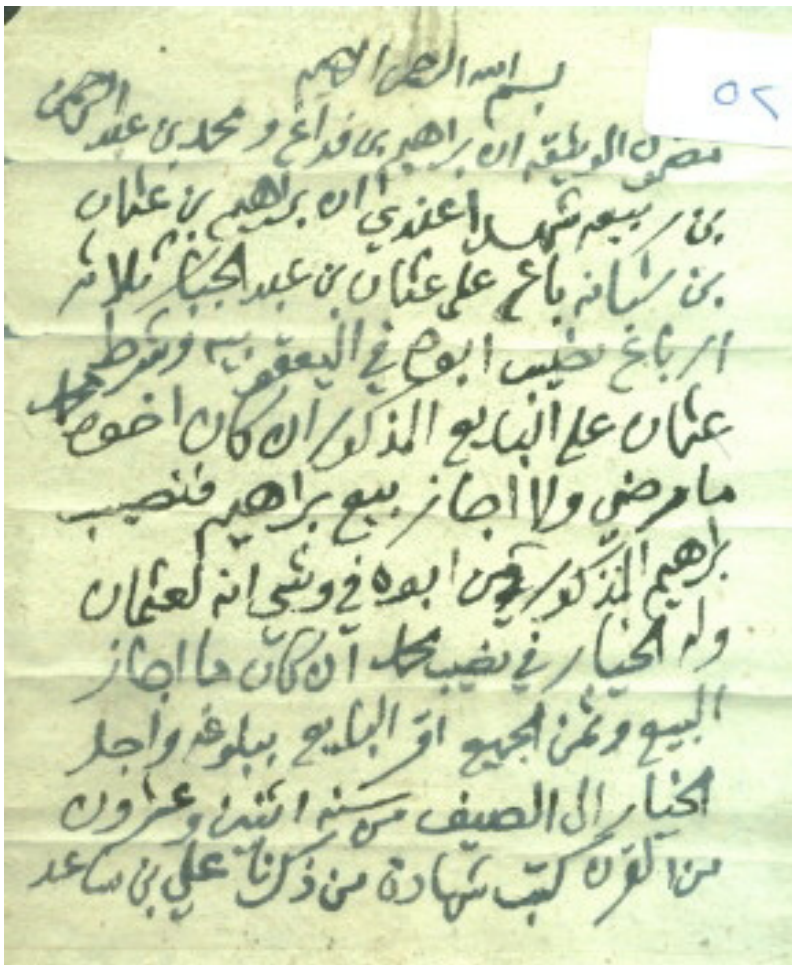 ٥٢
بسم الله الرحمن الرحيم
مضمون الوثيقه ان براهيم بن فداغ ومحمد بن عبد الرحمن
بن ربيعه شهدا عندي ان براهيم بن عثمان
بن شبانه باع على عثمان بن عبد الجبار ثلاثة
ارباع نصيب ابوه في اليعقوبيه وشرط
عثمان على البايع المذكور ان كان اخوه محمد
ما رضي ولا اجاز بيع براهيم فنصيب
براهيم المذكور من ابوه في وشي انه لعثمان
وله الخيار في نصيب محمد ان كان ما اجاز
البيع وثمن الجميع اقر البايع ببلوغه واجل
الخيار الى الصيف من سنة اثنين وعشرون
من القرن كتب شهادة من ذكرنا علي بن ساعد